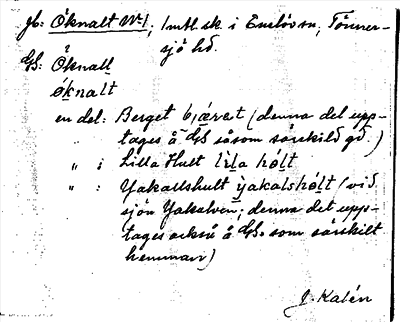 Jb: Öknalt Nr 1, 1 mtl sk. i Enslövsn, Tönner-
sjö hd.
GS. Öknall
öknalt
en del: Berget bjæræt (denna del upp-
tages å GS såsom särskild gd.)
" : Lilla Hult lila hølt
" : Yakallshult yakalshølt (vid
sjön Yakalven; denna del upp-
tages också å GS. som särskilt
hemman)
J. Kalén